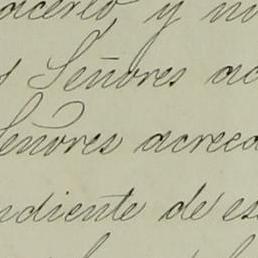 acerlo y no
Señores ac
eñores acreed
ndiente de es